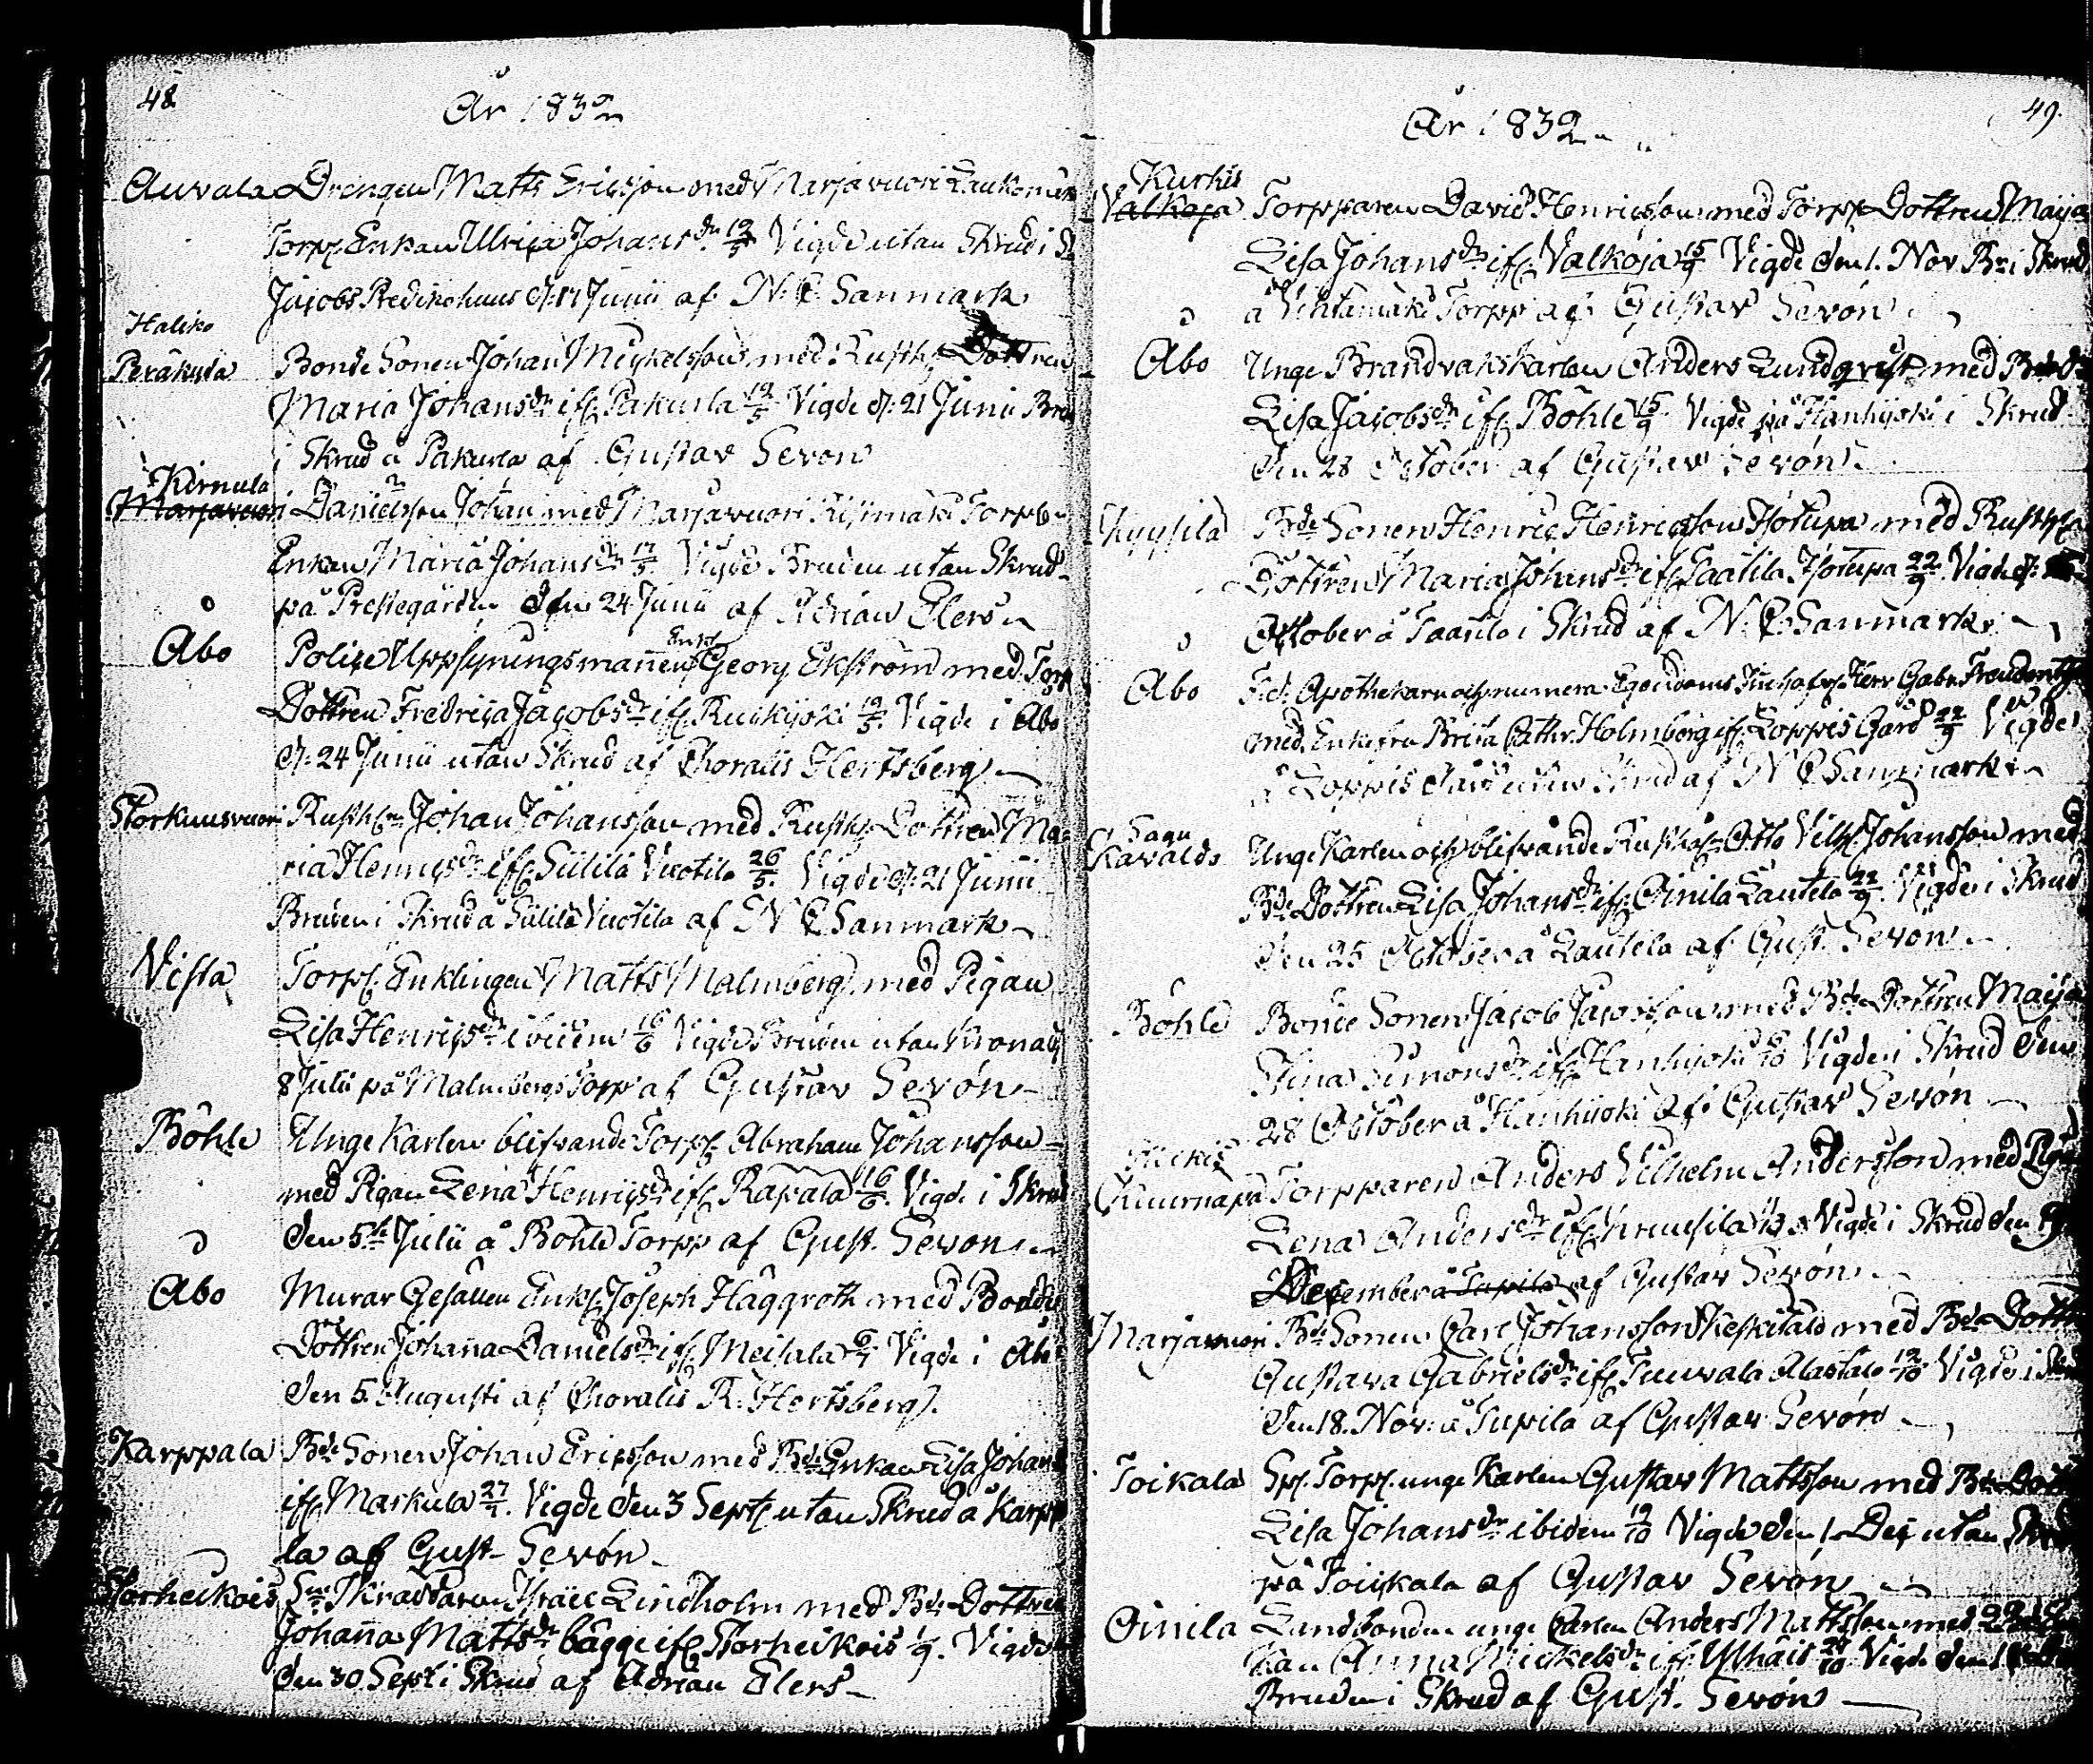 48
År 1832
Auvala Drengen Matts Ericsson med Marjavuori Laukomäk
Torp. Enkan Ulrica Johansdr 12/5 Vigde utan Skrud i St
Jacobs Predikohuus d. 17 Junii af N. C. Sanmark
Haliko
Peräkyla Bonde Sonen Johan Mickelsson med Rusth. Dottren
Maria Johansdr ifr. Pakurla 12/5 Vigde d. 21 Junii Brud
i Skrud å Pakurla af Gustav Sevon
Kirnula
Marjavuori Danielsson Johan med Marjavuori Torp
Enkan Maria Johansdr 17/5 Vigde Bruden utan Skrud
på Prestegården den 24 Junii af Adrian Elers
Åbo Police Uppsyningsmannen Enkl. Georg Ekström med Torp
Dottren Fredrica Jacobsdr ifr. Ruskijoki 19/5 Vigde i Åbo
d. 24 Junii utan Skrud af Choralis Hertsberg
Storkuusvuori Rusth. Johan Johansson med Rusth. Dottren Ma-
ria Henricsdr ifr. Siilila Vuotila 26/5. Vigde d. 21 Junii
Bruden i Skrud å Siilila Vuotila af N C Sanmark
Vista Torp. Enklingen Matts Malmberg med Pigan
Lisa Henricsdr ibidem 16/6 Vigde Bruden utan Krona d.
8 Julii på Malmbergs Torp af Gustav Sevón
Böhle Unge Karlen blifvande Torp. Abraham Johansson
med Pigan Lena Henricsdr ifr. Rapala 16/6. Vigde i Skrud
den 5te Julii å Böhle Torpp af Gust. Sevon
Åbo Murar Gesällen Enkl. Joseph Häggroth med Bonde
Dottren Johanna Danielsdr ifr. Meisala Vigde i Åbo
den 5. Augusti af Choralis R. Hertsberg.
Karppala Bde Sonen Johan Ericsson med Bde Enkan Lisa Johans
ifr. Markula 27/7. Vigde den 3 Septr utan Skrud å Karpp
la af Gust Sevón
Storheikois Sn Skräddaren Israel Lindholm med Bde Dottren
Johanna Mattsdr bägge ifr. Storheikois 1/9. Vigde
den 30 Sept i Skrud af Adrian Elers
49.
År 1832
Kurkis
Valkoja Torpparen David Henricsson med Torpp Dottren Maja
Lisa Johansdr ifr. Valkoja 15/9 Vigde den 1. Nov. Br. i Skrud
å Torpp af Gustav Sevón
Åbo Unge Brandvaktskarlen Anders Lundqvist med Bde
Lisa Jacobsdr ifr. Böhle 15/9 Vigde på Hanhijoki i Skrud
den 28 October af Gustav Sevón
Bde Sonen Henric Henricsson Isotupa med Rusth.
Dottren Maria Johansdr ifr. Taatila Isotupa 22/9 Vigde d.
October å Taatila i Skrud af N. C. Sanmark
Åbo F.d. Apothekaren och numera Egendoms Herr Gabr. Freudenth
med Enkefru Brita Cathr. Holmberg ifr. Loppis Gård 22/9 Vigde
å Loppis Gård utan Skrud af N C Sanmark
Sagu
Karvaldo Unge Karlen och blifvande Rusth. Otto Vilh. Johansson med
Bde Dottren Lisa Johansdr ifr. Oinila Lautela 22/9. Vigde i Skrud
den 25 October å Lautela af Gust. Sevón
Böhle Bonde Sonen Jacob Jacobsson med Bde Dottren Maja
Stina Simonsdr ifr. Hanhijoki 6/10 Vigde i Skrud den
28 October å Hanhijoki af Gustav Sevón
Kuurnapä Torpparen Anders Vilhelm Andersson med Piga
Lena Andersdr ifr. Vigde i Skrud den
December å Tupila af Gustav Sevón
Marjavuori Bde Sonen Carl Johansson Keskitalo med Bde Dottr
Gustava Gabrielsdr ifr. Tuuvala Alastalo 12/10 Vigde i Skrud
den 18. Nov. å Tupila af Gustav Sevón
Toikala Torp. unge Karlen Gustav Mattsson med Bde Dott
Lisa Johansdr ibidem 19/10 Vigde den 1 Dec utan Skrud
på Toickala af Gustav Sevón
Oinila Landbonden unge Carlen Anders Mattsson med
Anna Mickelsdr ifr. Ylhäis 29/10 Vigde den 1
Bruden i Skrud af Gust. Sevón